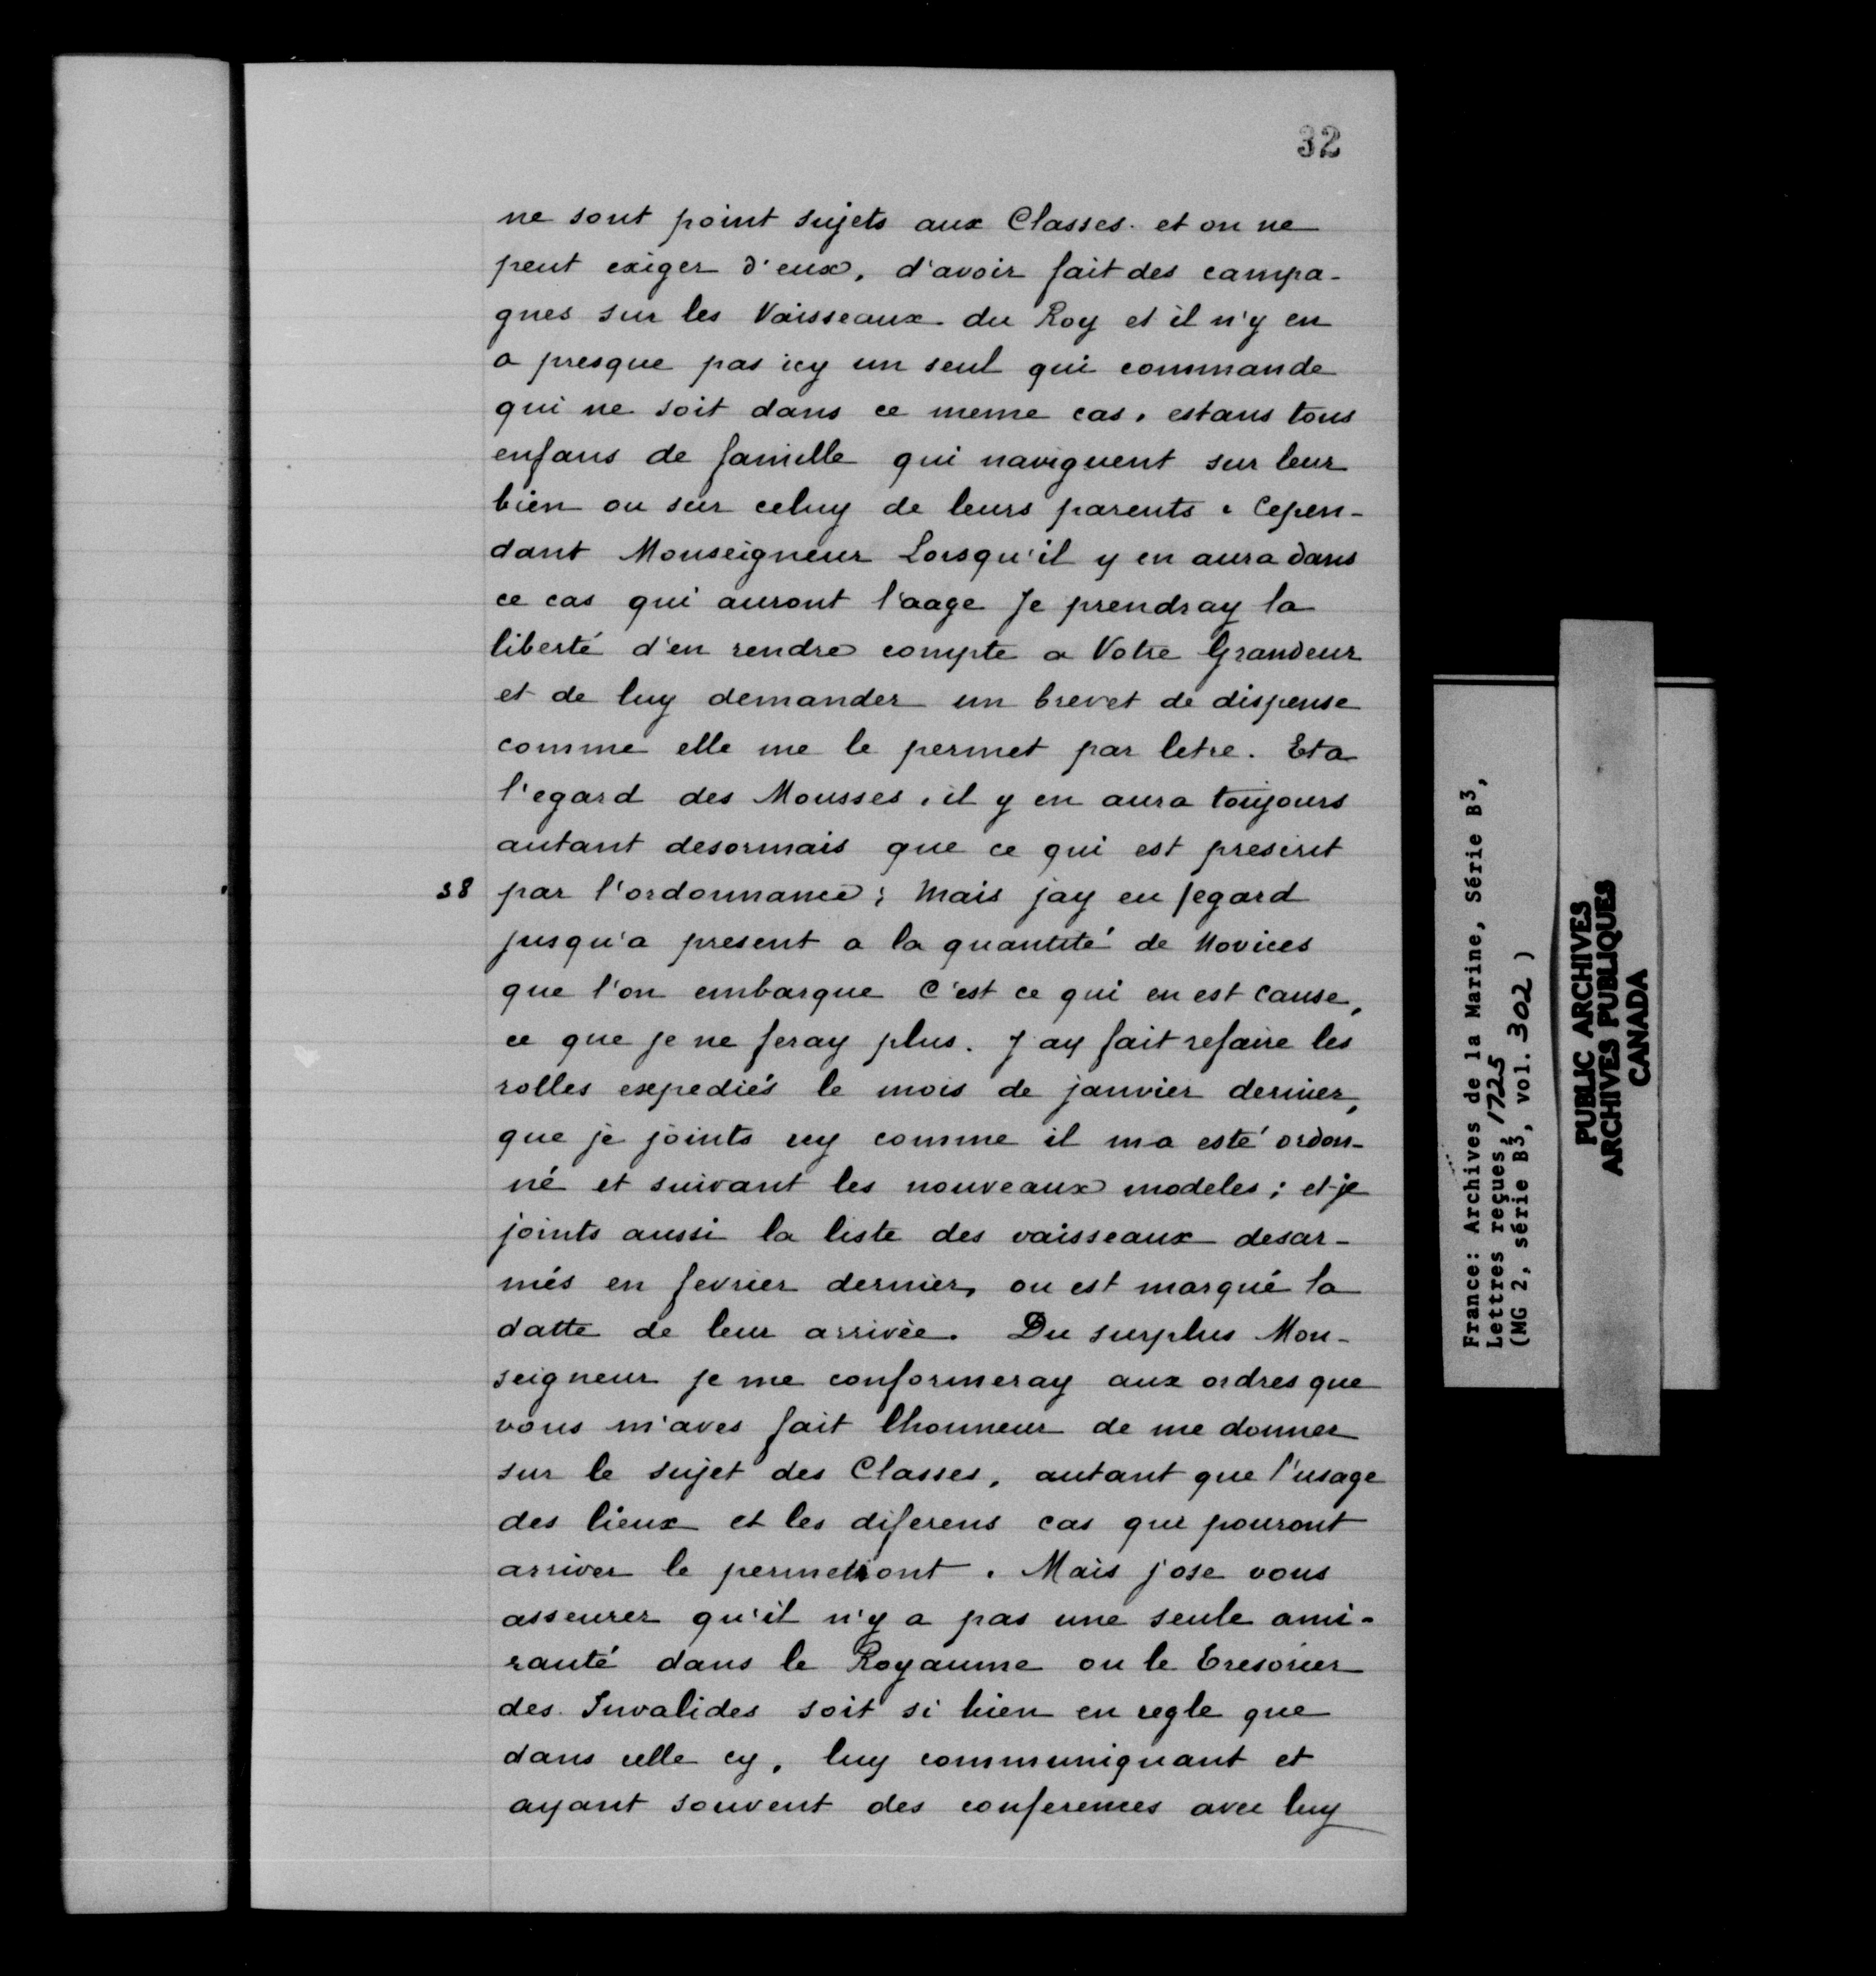 32
ne sont point sujets aux Classes. et on ne
peut exiger d'eux, d'avoir fait des campa-
gnes sur les Vaisseaux du Roy et il n'y en
a presque pas icy un seul qui commande
qui ne soit dans ce meme cas, estans tous
enfans de famille qui naviguent sur leur
bien ou sur celuy de leurs parents. Cepen-
dant Monseigneur Lorsqu'il y en aura dans
ce cas qui auront l'aage Je prendray la
liberté d'en rendre compte a Votre Grandeur
et de luy demander un brevet de dispense
comme elle me le permet par letre. Et a
l'egard des Mousses, il y en aura toujours
autant desormais que ce qui est prescrit
38 par l'ordonnance; Mais jay eu egard
jusqu'a present a la quantité de Novices
que l'on embarque C'est ce qui en est cause,
ce que je ne feray plus. J'ay fait refaire les
rolles expediés le mois de janvier dernier,
que je joints icy comme il m'a esté ordon-
né et suivant les nouveaux modeles; et je
joints aussi la liste des vaisseaux desar-
més en fevrier dernier, ou est marqué la
datte de leur arrivée. Du surplus Mon-
seigneur je me conformeray aux ordres que
vous m'aves fait lhonneur de me donner
sur le sujet des Classes, autant que l'usage
des lieux et les diferens cas qui pouront
arriver le permetront. Mais j'ose vous
asseurer qu'il n'y a pas une seule ami-
rauté dans le Royaume ou le Tresorier
des Invalides soit si bien en regle que
dans celle cy, luy communiquant et
ayant souvent des conferences avec luy
France: Archives de la Marine, Série B3,
Lettres reçues, 1725
(MG 2, série B3, vol. 302 )
PUBLIC ARCHIVES
ARCHIVES PUBLIQUES
CANADA